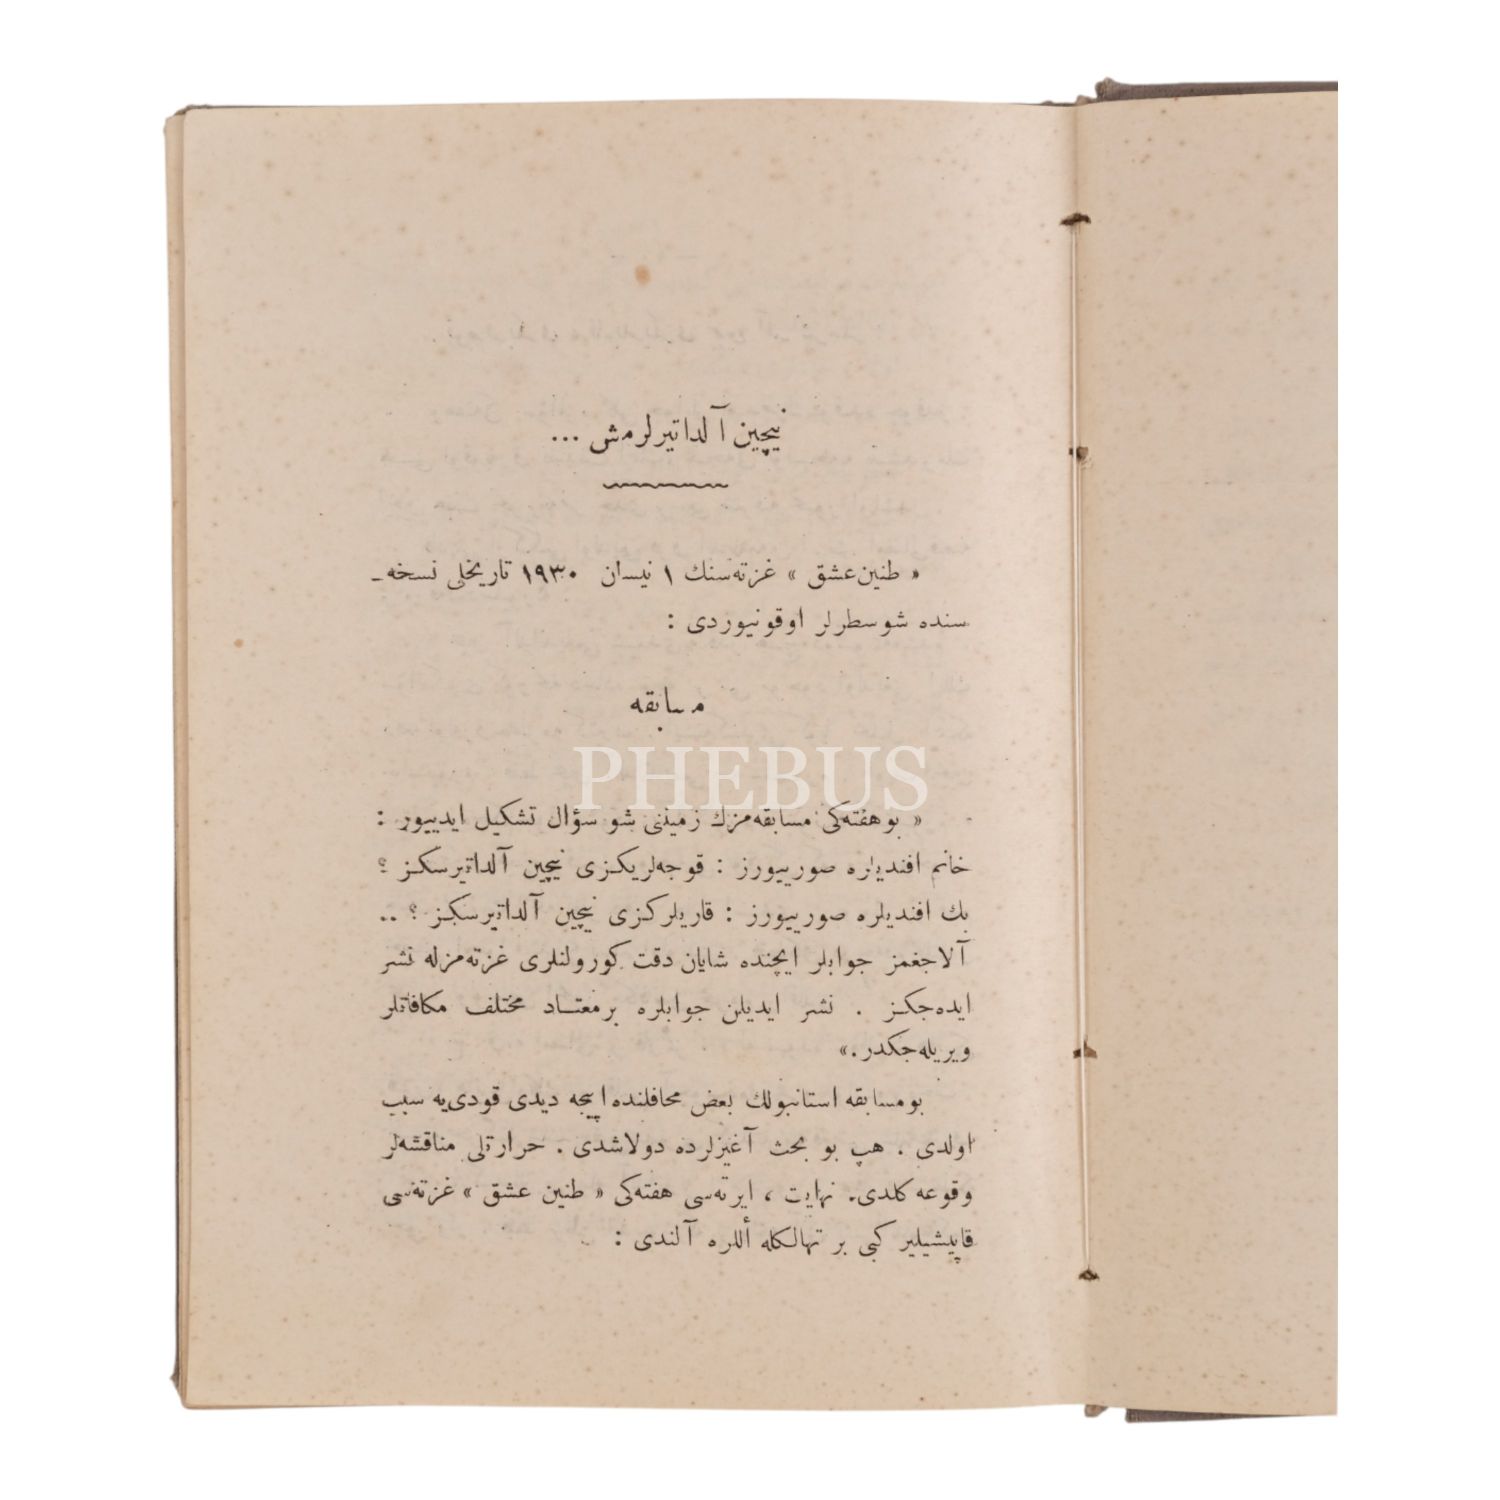 نیچین آلداتیرلرمش ...
« طنین عشق » غزته‌سنك ۱ نیسان ۱۹۳۰ تاریخلی نسخه ـ
سنده شو سطرلر اوقونیوردی :
مسابقه
PHEBUS
« بو هفته‌كی مسابقه‌مزك زمیننی شو سؤال تشكیل ایدییور :
خانم افندیلره صورییورز : قوجه‌لریكزی نیچین آلداتیرسكز ؟
بك افندیلره صورییورز : قاریلركزی نیچین آلداتیرسكز ؟ ..
آلاجغمز جوابلر ایچنده شایان دقت كورولنلری غزته‌مزله نشر
ایده‌جكز . نشر ایدیلن جوابلره برمعتاد مختلف مكافاتلر
ویریله‌جكدر .»
بو مسابقه استانبولك بعض محافلنده اپیجه دیدی قودی‌یه سبب
اولدی . هپ بو بحث آغیزلرده دولاشدی . حرارتلی مناقشه‌لر
وقوعه كلدی . نهایت ، ایرته‌سی هفته‌كی « طنین عشق » غزته‌سی
قاپیشیلیر كبی بر تهالكله أللره آلندی :